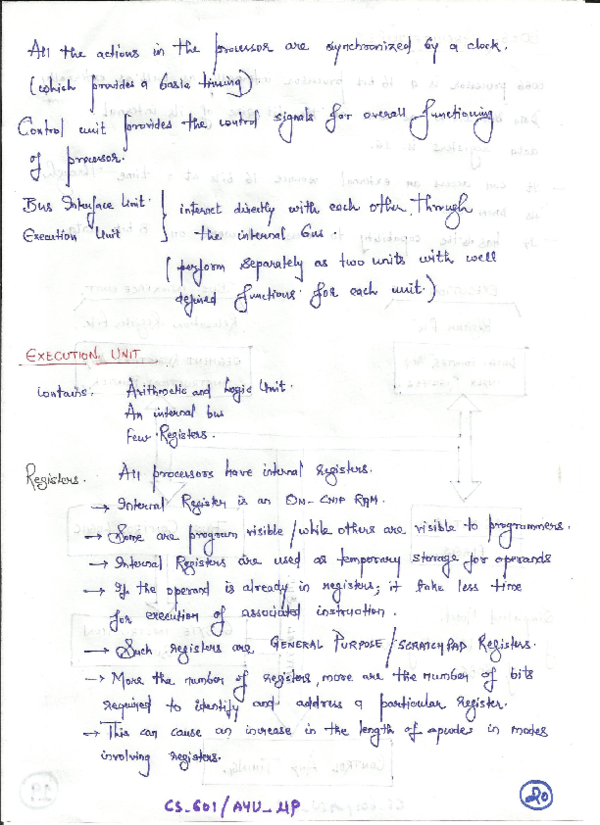 All the actions in the processor are synchronized by a clock.
(which provides a basic timing)
Control unit provides the control signals for overall functioning
of processor.
Bus Interface Unit } interact directly with each other, through
Execution Unit the internal bus.
(perform separately as two units with well
defined functions for each unit.)
EXECUTION UNIT
contains. Arithmetic and Logic Unit.
An internal bus
Few Registers.
Registers. All processors have internal registers.
→ Internal Register is an ON-CHIP RAM.
→ Some are program visible/while others are visible to programmers.
→ Internal Registers are used as temporary storage for operands
→ If the operand is already in registers; it take less time
for execution of associated instruction.
→ Such registers are GENERAL PURPOSE/SCRATCHPAD Registers.
→ More the number of registers, more are the number of bits
required to identify and address a particular register.
→ This can cause an increase in the length of opcodes in modes
involving registers.
CS_601/AYU_MP
20